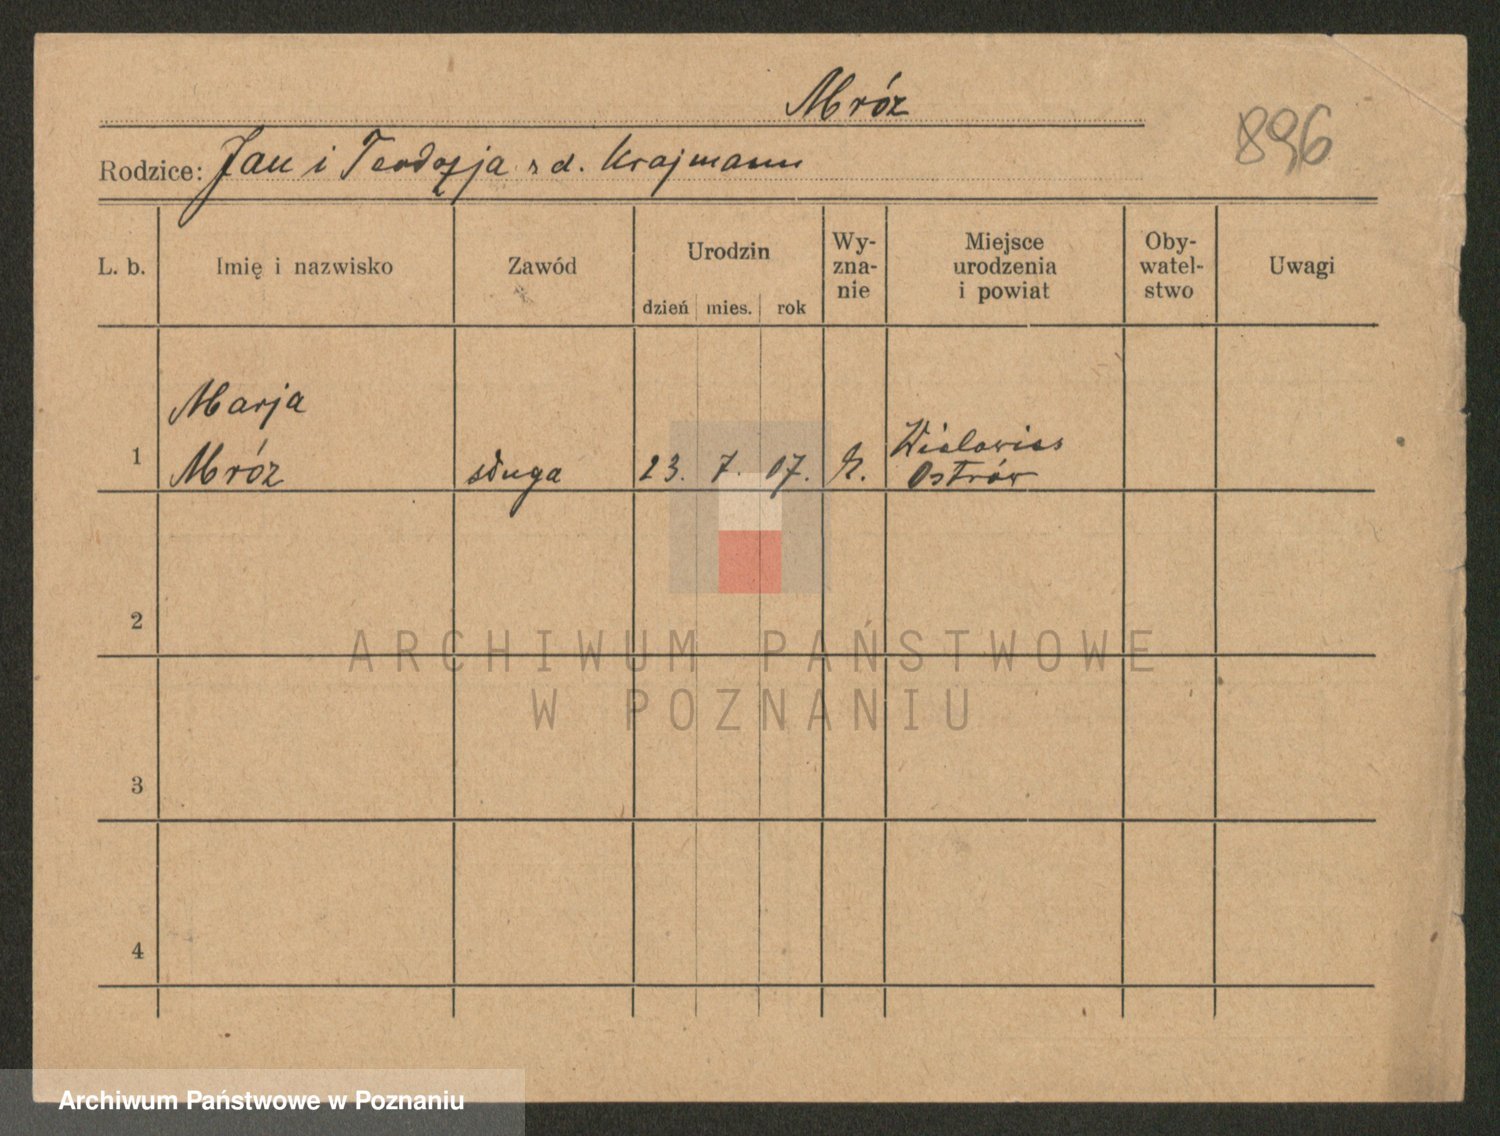 Mróz
896
Rodzice: Jan i Teodozja z d. Krajmann
L. b. Imię i nazwisko Zawód Urodzin dzień mies. rok Wy-zna-nie Miejsce urodzenia i powiat Oby-watel-stwo Uwagi
Marja
1 Mróz sługa 23. 7. 07. K. Wielowieś
Ostrów
2
3
4
ARCHIWUM PAŃSTWOWE
W POZNANIU
Archiwum Państwowe w Poznaniu